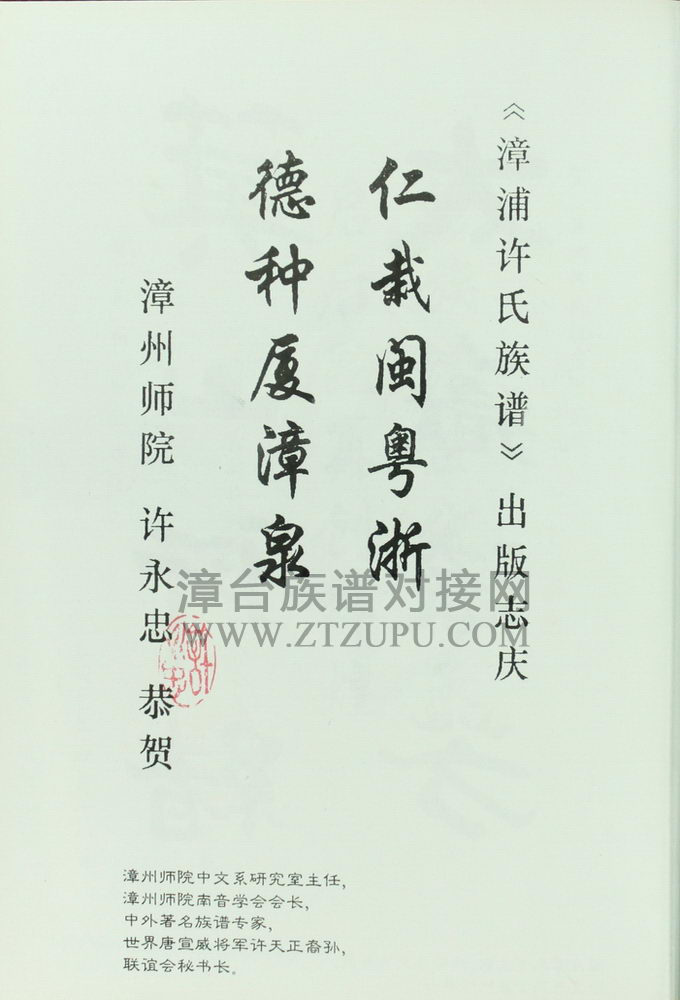 《漳浦许氏族谱》出版志庆
仁栽闽粤浙
德种厦漳泉
漳州师院 许永忠 恭贺
漳台族谱对接网
WWW.ZTZUPU.COM
漳州师院中文系研究室主任，
漳州师院南音学会会长，
中外著名族谱专家，
世界唐宣威将军许天正裔孙，
联谊会秘书长。